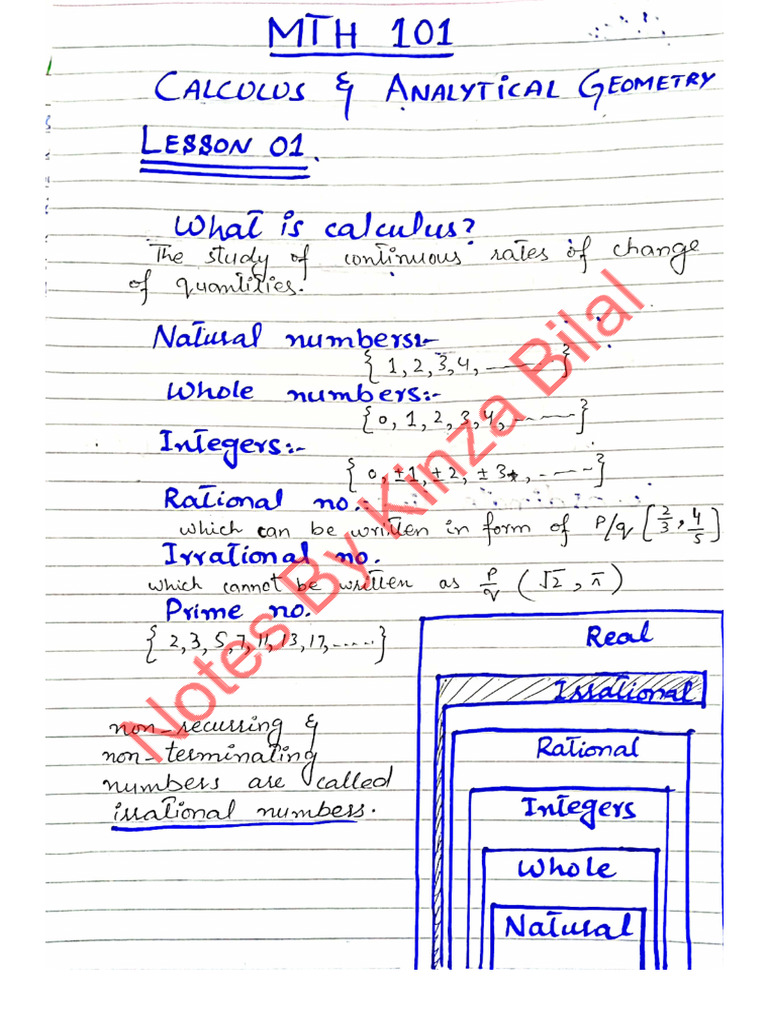 MTH 101
CALCULUS & ANALYTICAL GEOMETRY
LESSON 01.
What is calculus?
The study of continuous rates of change
of quantities.
Natural numbers:-
{1, 2, 3, 4, ------}
Whole numbers:-
{0, 1, 2, 3, 4, ------}
Integers:-
{0, ±1, ±2, ±3, -----}
Rational no.:-
which can be written in form of P/q [2/3, 4/5]
Irrational no.
which cannot be written as P/q (√2, π)
Prime no.
{2, 3, 5, 7, 11, 13, 17, .....}
non-recurring &
non-terminating
numbers are called
irrational numbers.
Real
Irrational
Rational
Integers
Whole
Natural
Notes By Kinza Bilal